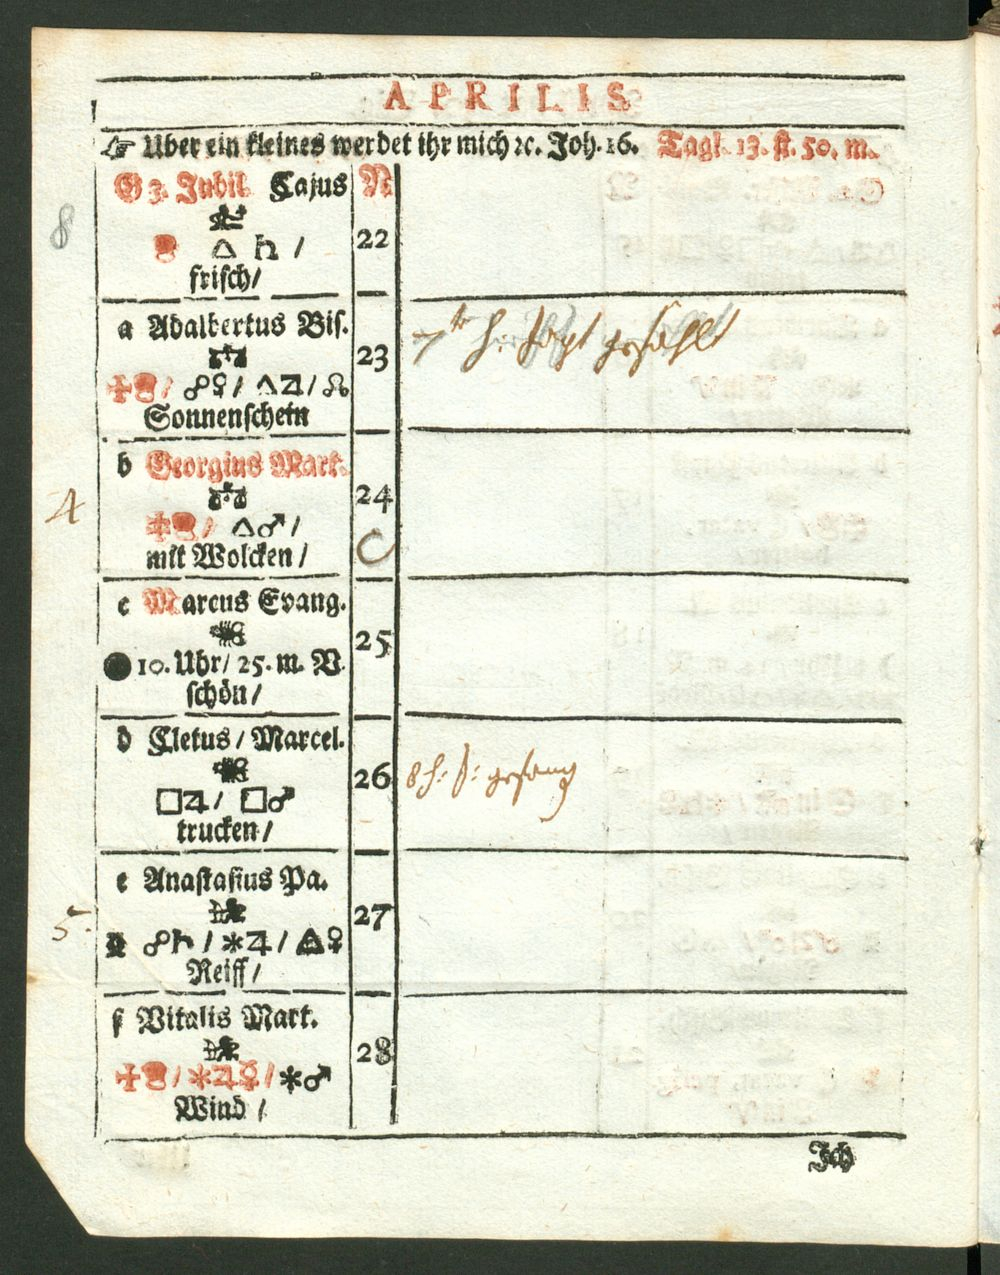 APRILIS
☞ Uber ein kleines werdet ihr mich ꝛc. Joh. 16. Tagl. 13. st. 50. m.
G 3. Jubil. Cajus N
8
△ ♄ / 22
frisch /
a Adalbertus Bis.
23 7
☍♀ / △♃ / ☊
Sonnenschein
b Georgius Mart.
24
4 △♂ /
mit Wolcken / C
c Marcus Evang.
25
● 10. Uhr / 25. m. V.
schön /
d Cletus / Marcel.
26 8 h: gesang
□♃ / □♂
trucken /
e Anastasius Pa.
27
5. ☍♄ / ✶♃ / △♀
Reiff /
f Vitalis Mart.
28
✶♃☿ / ✶♂
Wind /
Ich